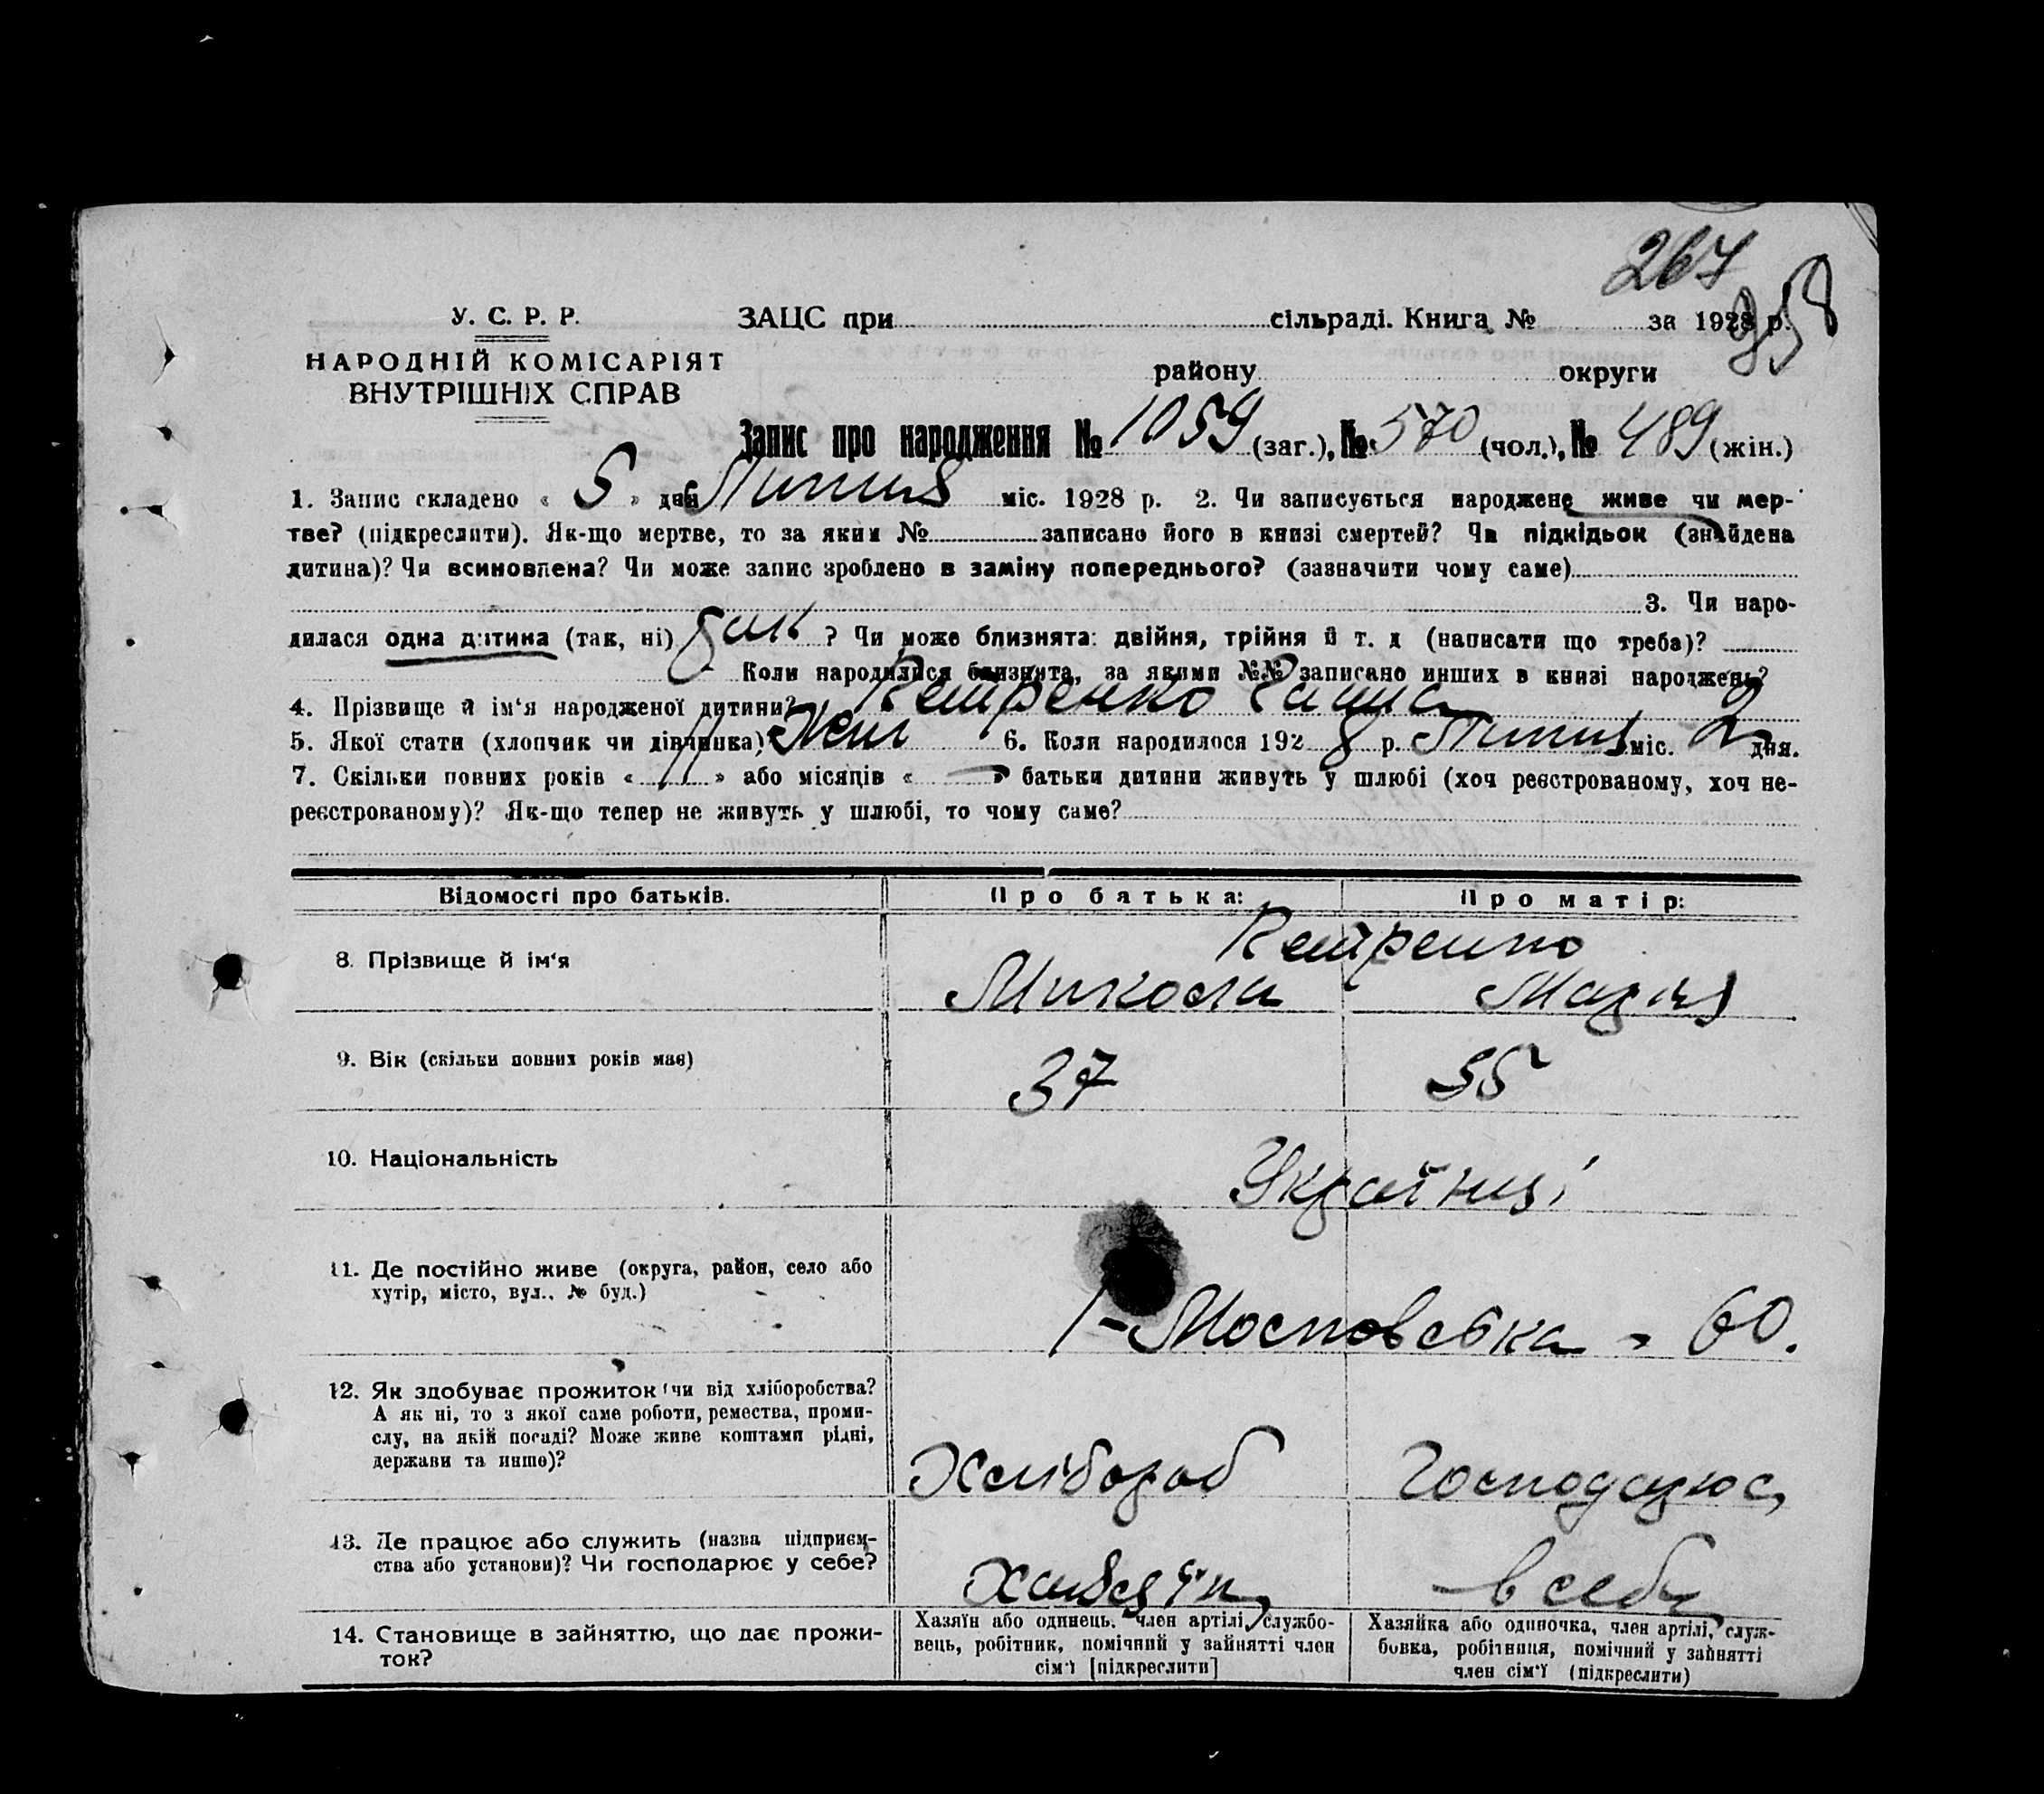 267
358
У. С. Р. Р. ЗАЦС при сільраді. Книга № за 1928 р.
НАРОДНІЙ КОМІСАРІЯТ
ВНУТРІШНІХ СПРАВ
району округи
Запис про народження № 1059 (заг.), № 570 (чол.), № 489 (жін.)
1. Запис складено « 5 » дня Липня міс. 1928 р. 2. Чи записується народжене живе чи мер-
тве? (підкреслити). Як-що мертве, то за яким № записано його в книзі смертей? Чи підкідьок (знайдена
дитина)? Чи всиновлена? Чи може запис зроблено в заміну попереднього? (зазначити чому саме)
3. Чи наро-
дилася одна дитина (так, ні) так ? Чи може близнята: двійня, трійня й т. д (написати що треба)?
Коли народилися близнята, за якими №№ записано инших в книзі народжень?
4. Прізвище й ім‘я народженої дитини? Петренко
5. Якої стати (хлопчик чи дівчинка) Жін 6. Коли народилося 1928 р. Липня міс. 2 дня.
7. Скільки повних років « 11 » або місяців « — » батьки дитини живуть у шлюбі (хоч реєстрованому, хоч не-
реєстрованому)? Як-що тепер не живуть у шлюбі, то чому саме?
Відомості про батьків. Про батька: Про матір:
Петренко
8. Прізвище й ім‘я Микола Мария
9. Вік (скільки повних років має) 37 35
10. Національність Українці
11. Де постійно живе (округа, район, село або
хутір, місто, вул., № буд.)
1-Московська 60.
12. Як здобуває прожиток чи від хліборобства?
А як ні, то з якої саме роботи, ремества, проми-
слу, на якій посаді? Може живе коштами рідні,
держави та инше)?
Хлібороб Господарює
13. Де працює або служить (назва підприєм-
ства або установи)? Чи господарює у себе?
в себе
14. Становище в зайняттю, що дає прожи-
ток?
Хазяїн або одинець, член артілі, службо-
вець, робітник, помічний у зайнятті член
сім‘ї [підкреслити]
Хазяйка або одиночка, член артілі, служ-
бовка, робітниця, помічний у зайнятті
член сім‘ї (підкреслити)